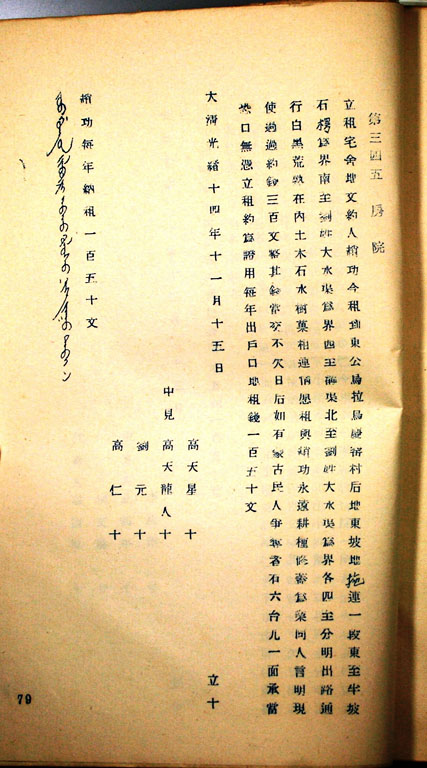 第三四五 房院
立租宅舍地文約人續功今租到東公烏拉烏慶窑村后地東坡地拖連一段東至半坡
石楞爲界南至劉姓大水渠爲界西至溝渠北至劉姓大水渠爲界各四至分明出路通
行白黑荒熟在內土木石水樹菓相連情愿租與續功永遠耕種修蓋爲業同人言明現
使過過約錢三百文整其錢當交不欠日后如石蒙古民人爭奪者石六台儿一面承當
恐口無憑立租約爲證用每年出戶口地租錢一百五十文
大清光緒十四年十一月十五日 立十
高天星 十
中見 高天龍人十
劉元 十
高仁 十
續功每年納租一百五十文
79